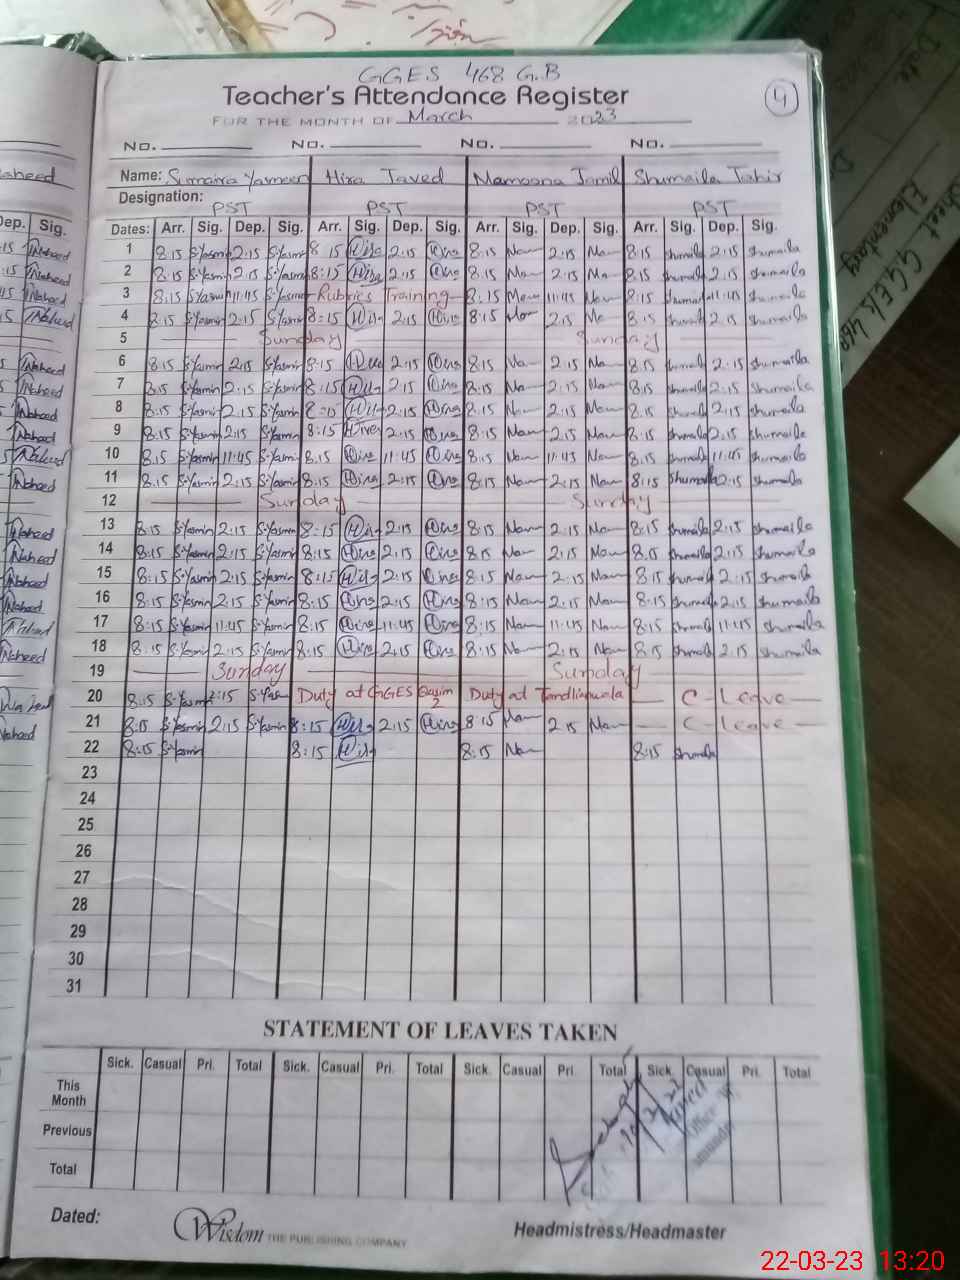 GGES 468 G.B
Teacher's Attendance Register
4
FOR THE MONTH OF March 2023
No. No. No. No.
Name: Sumaira Yasmeen Hira Javed Mamoona Jamil Shumaila Tahir
Designation: PST PST PST PST
Dates: Arr. Sig. Dep. Sig. Arr. Sig. Dep. Sig. Arr. Sig. Dep. Sig. Arr. Sig. Dep. Sig.
1 8:15 S-Yasmin 2:15 S-Yasmin 8:15 Hira 2:15 Hira 8:15 2:15 8:15 Shumaila 2:15 Shumaila
2 8:15 S-Yasmin 2:15 S-Yasmin 8:15 Hira 2:15 Hira 8:15 2:15 8:15 Shumaila 2:15 Shumaila
3 8:15 S-Yasmin 11:45 S-Yasmin Rubrics Training 8:15 11:45 8:15 Shumaila 11:45 Shumaila
4 8:15 S-Yasmin 2:15 S-Yasmin 8:15 Hira 2:15 Hira 8:15 2:15 8:15 Shumaila 2:15 Shumaila
5 Sunday Sunday
6 8:15 S-Yasmin 2:15 S-Yasmin 8:15 Hira 2:15 Hira 8:15 2:15 8:15 Shumaila 2:15 Shumaila
7 8:15 S-Yasmin 2:15 S-Yasmin 8:15 Hira 2:15 Hira 8:15 2:15 8:15 Shumaila 2:15 Shumaila
8 8:15 S-Yasmin 2:15 S-Yasmin 8:15 Hira 2:15 Hira 8:15 2:15 8:15 Shumaila 2:15 Shumaila
9 8:15 S-Yasmin 2:15 S-Yasmin 8:15 Hira 2:15 Hira 8:15 2:15 8:15 Shumaila 2:15 Shumaila
10 8:15 S-Yasmin 11:45 S-Yasmin 8:15 Hira 11:45 Hira 8:15 11:45 8:15 Shumaila 11:45 Shumaila
11 8:15 S-Yasmin 2:15 S-Yasmin 8:15 Hira 2:15 Hira 8:15 2:15 8:15 Shumaila 2:15 Shumaila
12 Sunday Sunday
13 8:15 S-Yasmin 2:15 S-Yasmin 8:15 Hira 2:15 Hira 8:15 2:15 8:15 Shumaila 2:15 Shumaila
14 8:15 S-Yasmin 2:15 S-Yasmin 8:15 Hira 2:15 Hira 8:15 2:15 8:15 Shumaila 2:15 Shumaila
15 8:15 S-Yasmin 2:15 S-Yasmin 8:15 Hira 2:15 Hira 8:15 2:15 8:15 Shumaila 2:15 Shumaila
16 8:15 S-Yasmin 2:15 S-Yasmin 8:15 Hira 2:15 Hira 8:15 2:15 8:15 Shumaila 2:15 Shumaila
17 8:15 S-Yasmin 11:45 S-Yasmin 8:15 Hira 11:45 Hira 8:15 11:45 8:15 Shumaila 11:45 Shumaila
18 8:15 S-Yasmin 2:15 S-Yasmin 8:15 Hira 2:15 Hira 8:15 2:15 8:15 Shumaila 2:15 Shumaila
19 Sunday Sunday
20 8:15 S-Yasmin 2:15 S-Yasmin Duty at GGES Qasim 2 Duty at Tandlianwala C-Leave
21 8:15 S-Yasmin 2:15 S-Yasmin 8:15 Hira 2:15 Hira 8:15 2:15 C-Leave
22 8:15 S-Yasmin 8:15 Hira 8:15 8:15 Shumaila
23
24
25
26
27
28
29
30
31
STATEMENT OF LEAVES TAKEN
Sick. Casual Pri. Total Sick. Casual Pri. Total Sick. Casual Pri. Total Sick. Casual Pri. Total
This Month
Previous
Total
Dated:
Wisdom THE PUBLISHING COMPANY
Headmistress/Headmaster
22-03-23 13:20